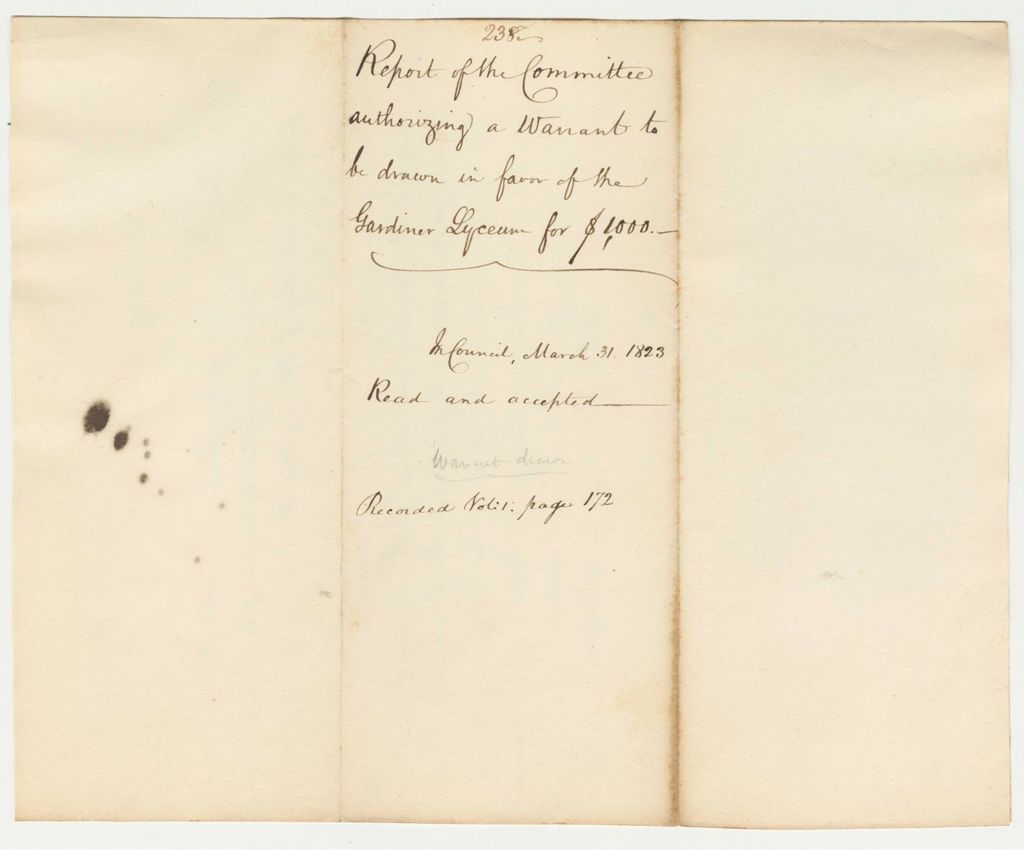 238
Report of the Committee
authorizing a Warrant to
be drawn in favor of the
Gardiner Lyceum for $1,000.—
In Council, March 31. 1823
Read and accepted
Warrant drawn
Recorded Vol: 1: page 172